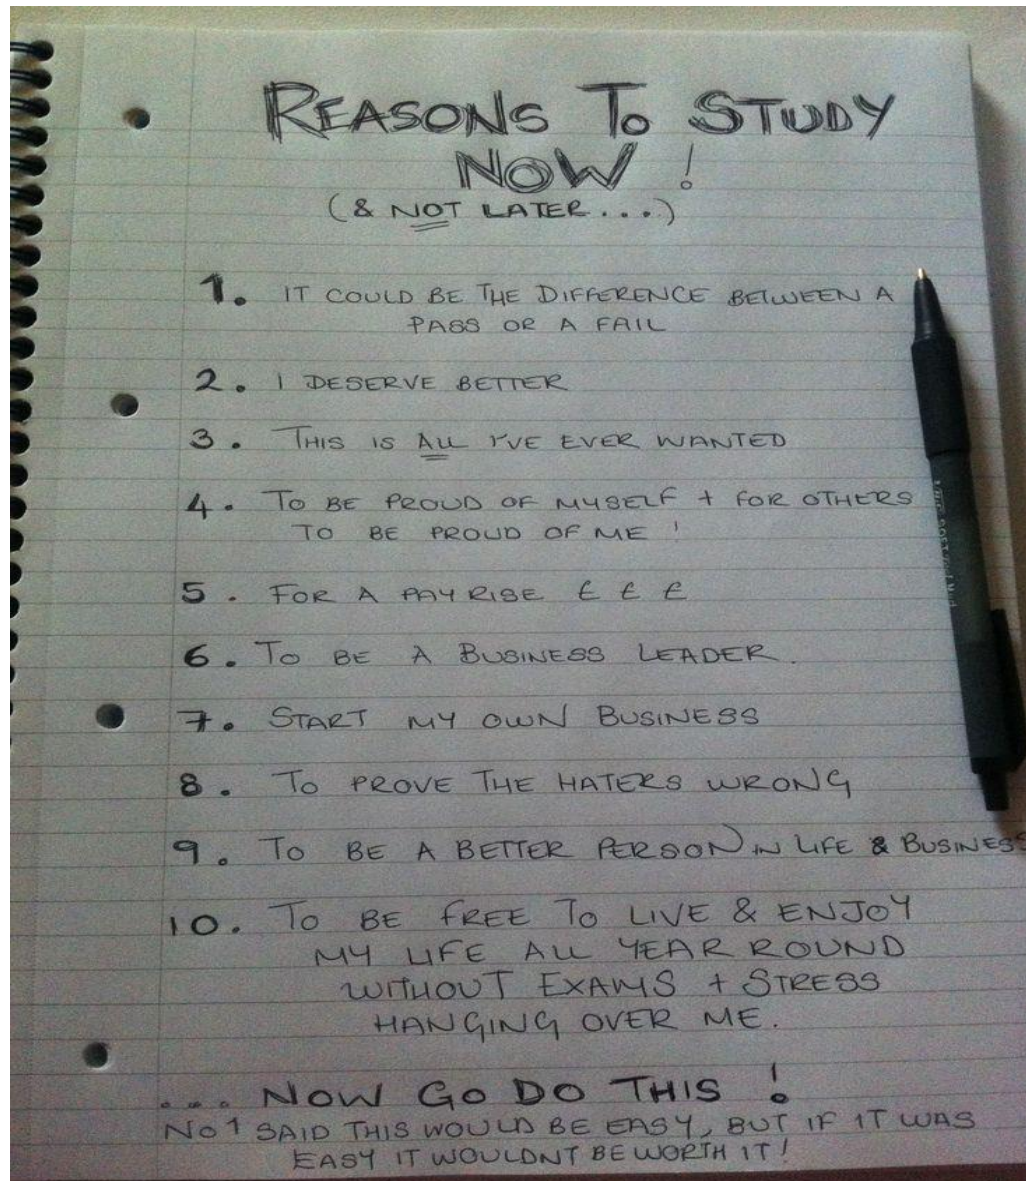 REASONS TO STUDY
NOW!
(& NOT LATER...)
1. IT COULD BE THE DIFFERENCE BETWEEN A
PASS OR A FAIL
2. I DESERVE BETTER
3. THIS IS ALL I'VE EVER WANTED
4. TO BE PROUD OF MYSELF + FOR OTHERS
TO BE PROUD OF ME!
5. FOR A PAY RISE £ £ £
6. TO BE A BUSINESS LEADER.
7. START MY OWN BUSINESS
8. TO PROVE THE HATERS WRONG
9. TO BE A BETTER PERSON IN LIFE & BUSINESS
10. TO BE FREE TO LIVE & ENJOY
MY LIFE ALL YEAR ROUND
WITHOUT EXAMS + STRESS
HANGING OVER ME.
... NOW GO DO THIS!
NO1 SAID THIS WOULD BE EASY, BUT IF IT WAS
EASY IT WOULDNT BE WORTH IT!